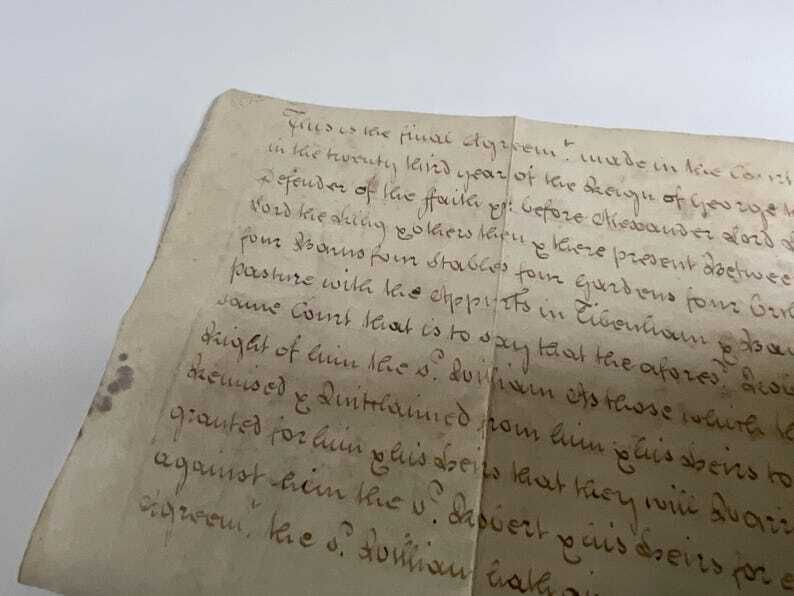 This is the final Agreemt. made in the Court
in the twenty third year of the Reign of George th
Defender of the ffaith &c: before Alexander Lord L
Lord the King & others then & there present Betwee
four Barns four Stables four Gardens four Orch
pasture with the Appurts in Tibenham & Ba
same Court that is to say that the aforesd. Ro
Right of him the sd. William As those which th
Remised & Quitclaimed from him & his Heirs to
granted for him & his Heirs that they will Warr
against him the sd. Robert & his Heirs for e
Agreemt. the sd. William hath